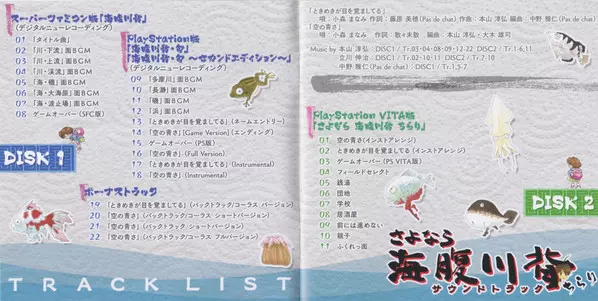 スーパーファミコン版「海腹川背」
(デジタルニューレコーディング)
01 「タイトル曲」
02 「川・下流」面BGM
03 「川・上流」面BGM
04 「川・渓流」面BGM
05 「海・磯」面BGM
06 「海・大海原」面BGM
07 「海・波止場」面BGM
08 ゲームオーバー (SFC版)
DISK 1
PlayStation版
「海腹川背・旬」
「海腹川背・旬 〜セカンドエディション〜」
(デジタルニューレコーディング)
09 「多摩川」面BGM
10 「長瀞」面BGM
11 「磯」面BGM
12 「浜」面BGM
13 「ときめきが目を覚ましてる」(ネームエントリー)
14 「空の青さ」[Game Version] (エンディング)
15 ゲームオーバー (PS版)
16 「空の青さ」(Full Version)
17 「ときめきが目を覚ましてる」(Instrumental)
18 「空の青さ」(Instrumental)
ボーナストラック
19 「ときめきが目を覚ましてる」(バックトラック/コーラス バージョン)
20 「空の青さ」(バックトラック/コーラス ショートバージョン)
21 「空の青さ」(バックトラック ショートバージョン)
22 「空の青さ」(バックトラック/コーラス フルバージョン)
TRACK LIST
「ときめきが目を覚ましてる」
唄:小森 まなみ 作詞:藤原 美穂(Pas de chat) 作曲:本山 淳弘 編曲:中野 雅仁(Pas de chat)
「空の青さ」
唄:小森 まなみ 作詞: 作曲:本山 淳弘 編曲:本山 淳弘・大木 雄司
Music by 本山 淳弘 :DISC1 / Tr.03・04・08・09・12・22 DISC2 / Tr.1,6,11
立川 伸治 :DISC1 / Tr.02・10・11 DISC2 / Tr.
中野 雅仁(Pas de chat) :DISC1 / Tr.1,5-7
PlayStation VITA版
「さよなら 海腹川背 ちらり」
01 空の青さ(インストアレンジ)
02 ときめきが目を覚ましてる(インストアレンジ)
03 ゲームオーバー(PS VITA版)
04 フィールドセレクト
05 銭湯
06 団地
07 学校
08 居酒屋
09 前には進めない
10 親子
11 ふくれっ面
DISK 2
さよなら
海腹川背
ちらり
サウンドトラック